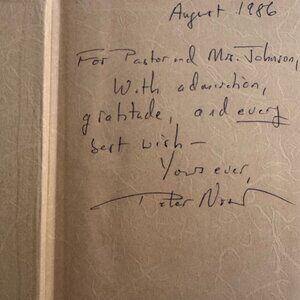 August 1986
For Pastor and Mrs. Johnson,
With admiration,
gratitude, and every
best wish —
Yours ever,
Peter